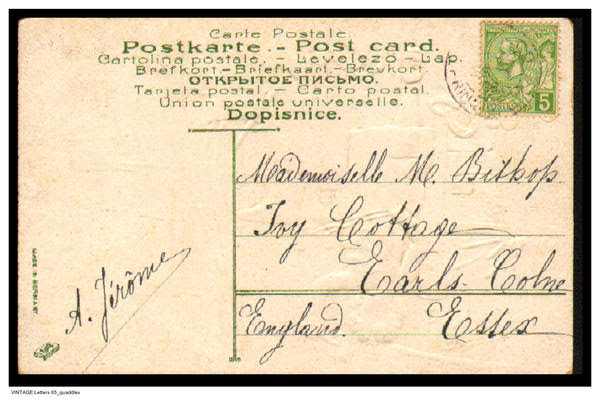 Carte Postale.
Postkarte. - Post card.
Cartolina postale. - Levelező-Lap.
Brefkort - Briefkaart. - Brevkort
ОТКРЫТОЕ ПИСЬМО.
Tarjeta postal. - Carto postal.
Union postale universelle.
Dopisnice.
5
Mademoiselle M. Bishop
Ivy Cottage
Earls-Colne
England. Essex
A. Jérôme
MADE IN GERMANY
VINTAGE Letters 05_quaddles